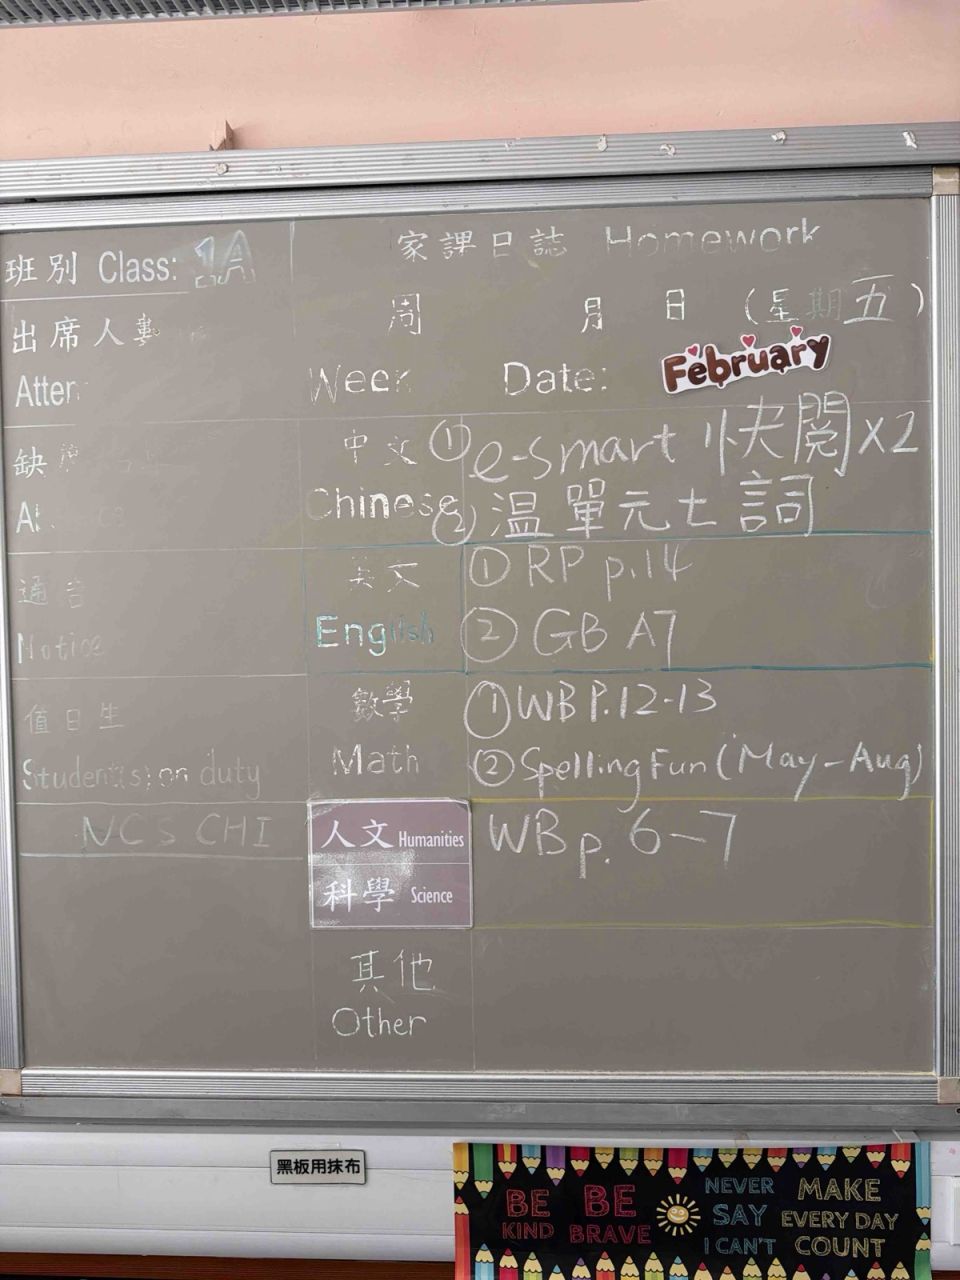 班別 Class: 1A
家課日誌 Homework
出席人數
周 月 日 (星期五)
Atten
Week Date: February
缺
中文 ① e-smart 快閱x2
Chinese ② 温單元七詞
通告
英文 ① RP p.14
Notice
English ② GB A7
值日生
數學 ① WB P.12-13
Student(s) on duty
Math ② Spelling Fun (May-Aug)
NCS CHI
人文 Humanities WB p. 6-7
科學 Science
其他
Other
黑板用抹布
BE KIND
BE BRAVE
NEVER SAY I CAN'T
MAKE EVERY DAY COUNT